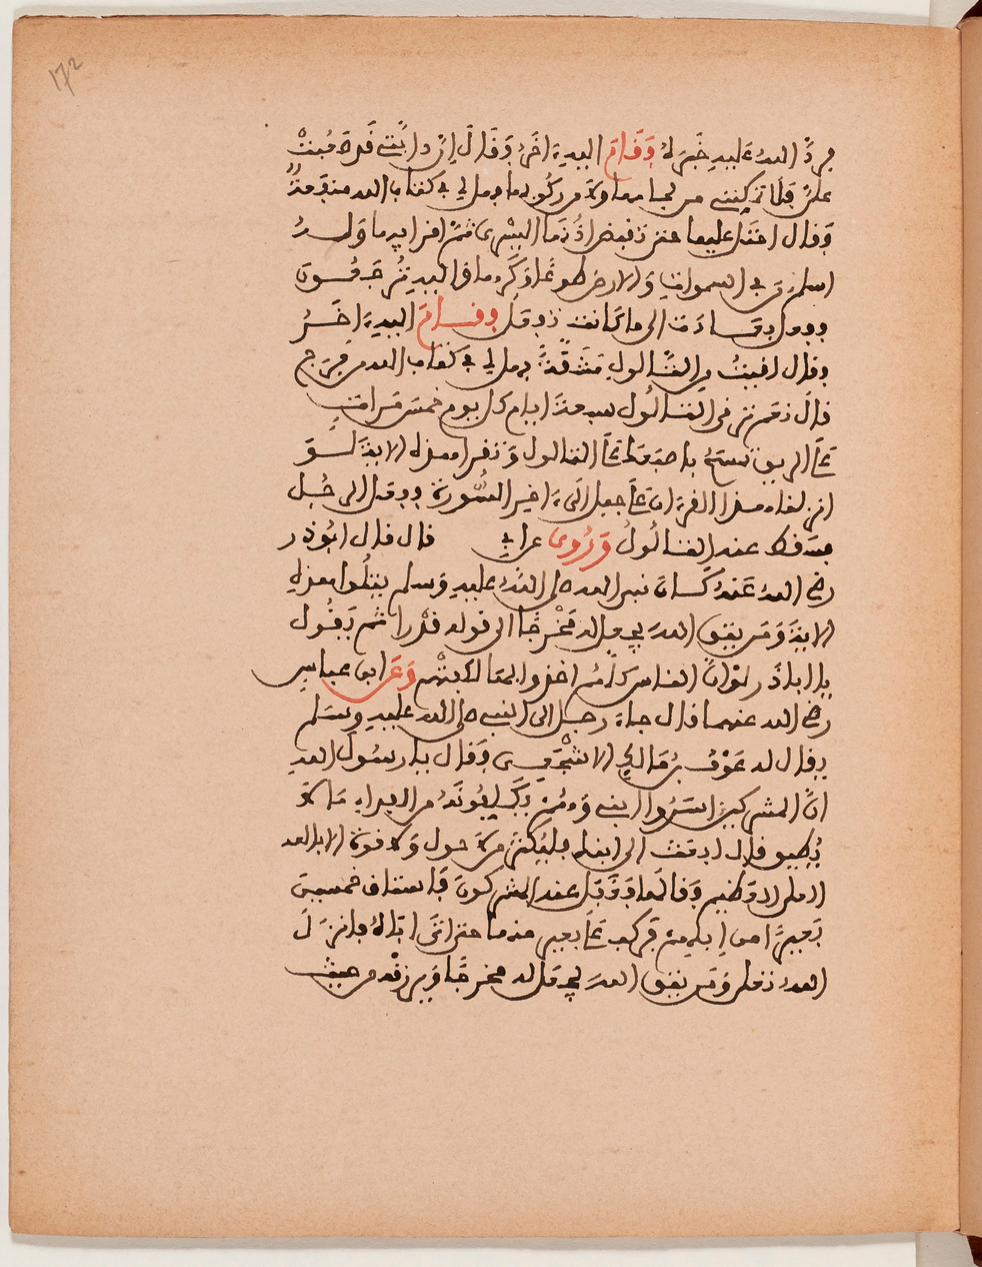 172
فرد الله عليه خبره وقام اليه اخر وقال ان دابتي قد قمنت
علي فلا تركنني من لجامها ولا من ركوبها فهل لي في كتاب الله منفعة
وقال اقرا عليها حين تقبض اذنها اليسرى ثم اقرا فيها وله
اسلم من في السموات والارض طوعا وكرها واليه ترجعون
وقام اليه اخر
وقال لقيت من الثالول مشقة فهل لي في كتاب الله من فرج
قال نعم تقرا في الثالول سبعة ايام كل يوم خمس مرات
على الريق تمسح باصبعك على الثالول وتقرا هذه الاية لو
انزلنا هذا القرءان على جبل الى ءاخر السورة
فسقط عنه الثالول وروي عن ابي قال قال ابو ذر
رضي الله عنه كان نبي الله صلى الله عليه وسلم يتلوا هذه
الاية ومن يتق الله يجعل له مخرجا الى قوله قدرا ثم يقول
يا ابا ذر لو ان الناس كلهم اخذوا بها لكفتهم وعن ابن عباس
رضي الله عنهما قال جاء رجل الى النبي صلى الله عليه وسلم
يقال له عوف بن مالك الاشجعي وقال يا رسول الله
ان المشركين اسروا ابني وهم يكلفونه من الفداء ما لا
يطيق قال ابعث الى ابنك فليكثر من لا حول ولا قوة الا بالله
العلي العظيم وقالها وغفل عنه المشركون فاستاق خمسين
بعيرا من ابلهم فركب على بعير منها حتى اتى اباه فانزل
الله تعلى ومن يتق الله يجعل له مخرجا ويرزقه من حيث